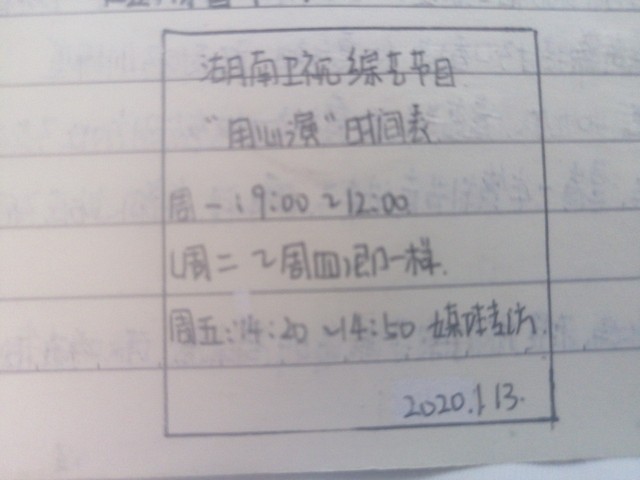 湖南卫视综艺节目
"用心演"时间表
周一:9:00~12:00
(周二~周四)都一样.
周五:14:20~14:50 媒体专访.
2020.1.13.